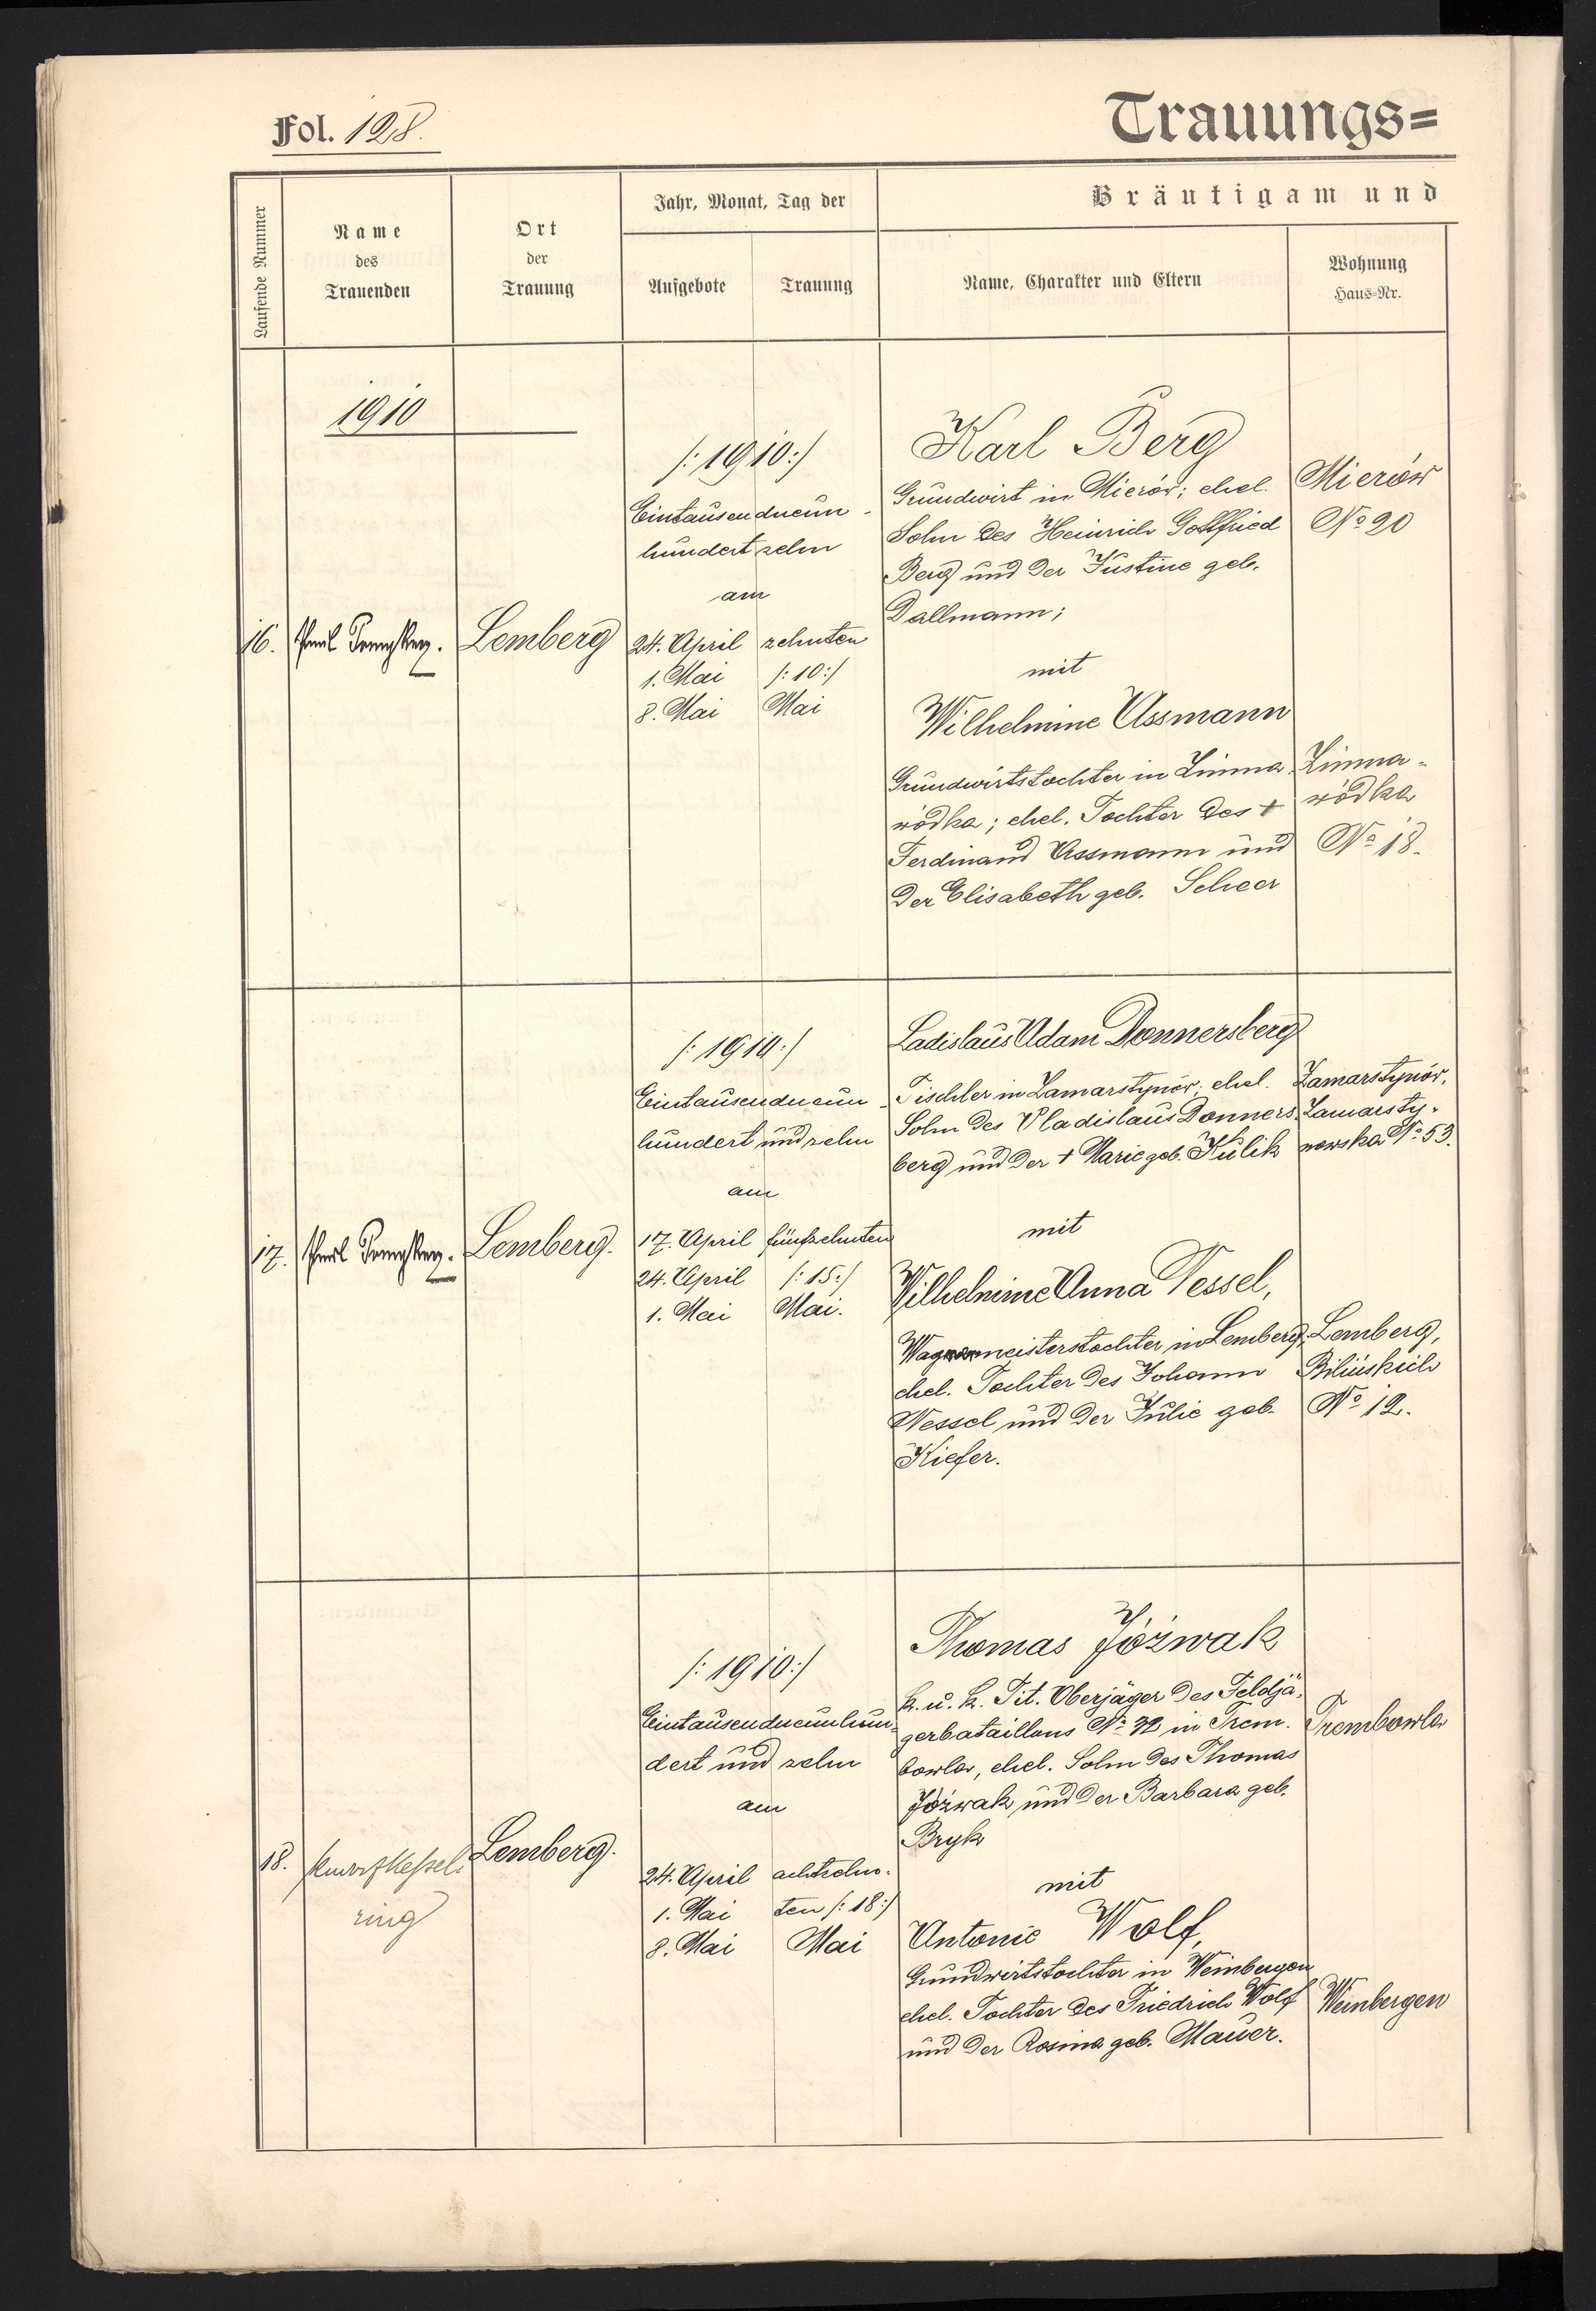 Fol. 128.
Trauungs=
Laufende Nummer
Name
des
Trauenden
Ort
der
Trauung
Jahr, Monat, Tag der
Aufgebote
Trauung
Bräutigam und
Name, Charakter und Eltern
Wohnung
Haus-Nr.
1910
16.
Lemberg
/: 1910 :/
Eintausendneun-
hundert zehn
am
24. April zehnten
1. Mai /: 10 :/
8. Mai Mai
Karl Berg
Grundwirt in Mierów; ehel.
Sohn des Heinrich Gottfried
Berg und der Justine geb.
Dallmann;
mit
Wilhelmine Assmann
Grundwirtstochter in Zimna
wódka; ehel. Tochter des +
Ferdinand Assmann und
der Elisabeth geb. Scheer
Mierów
No 20
Zimna-
wódka
No 18.
17.
Lemberg.
/: 1910 :/
Eintausendneun-
hundert und zehn
am
17. April fünfzehnten
24. April /: 15 :/
1. Mai Mai.
Ladislaus Adam Donnersberg
Tischler in Zamarstynów, ehel.
Sohn des Vladislaus Donners-
berg und der + Marie geb. Kulik
mit
Wilhelmine Anna Wessel,
meisterstochter in Lemberg,
ehel. Tochter des Johann
Wessel und der Julie geb.
Kiefer.
Zamarstynów,
Zamarsty-
nowska No 53.
Lemberg,
No 12.
18.
Lemberg.
/: 1910 :/
Eintausendneunhun-
dert und zehn
am
24. April achtzehn-
1. Mai ten /: 18 :/
8. Mai Mai
Thomas Jóźwak
k. u. k. Tit. Oberjäger des Feldjä-
gerbataillons No in Trem-
bowla, ehel. Sohn des Thomas
Jóźwak und der Barbara geb.
Bryk
mit
Antonie Wolf,
Grundwirtstochter in Weinbergen
ehel. Tochter des Friedrich Wolf
und der Rosina geb. Mauer.
Trembowla
Weinbergen